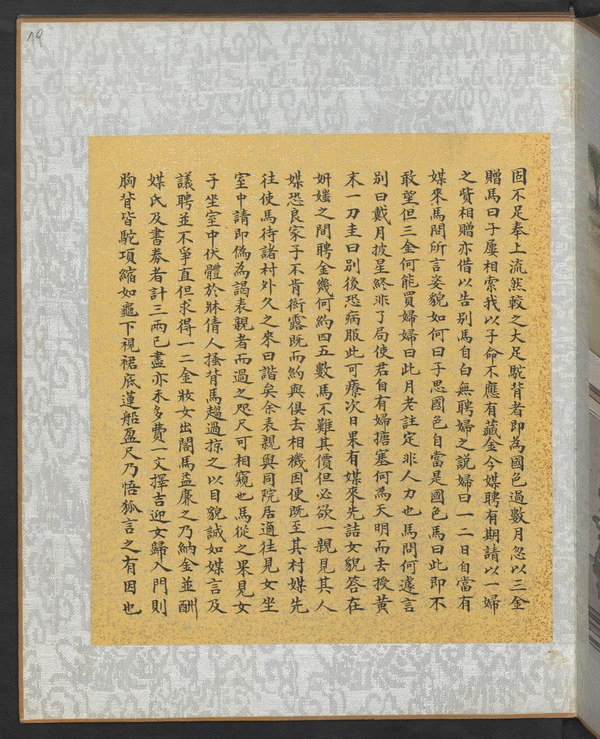 固不足奉上流然較之大足駝背者即為國色過數月忽以三金
贈馬曰子屢相索我以子命不應有藏金今媒聘有期請以一婦
之貲相贈亦借以告別馬自白無聘婦之說婦曰一二日自當有
媒來馬問所言姿貌如何曰子思國色自當是國色馬曰此即不
敢望但三金何能買婦婦曰此月老註定非人力也馬問何遽言
別曰戴月披星終非了局使君自有婦搪塞何為天明而去授黃
末一刀圭曰別後恐病服此可療次日果有媒來先詰女貌答在
妍媸之間聘金幾何約四五數馬不難其價但必欲一親見其人
媒恐良家子不肯衒露既而約與俱去相機因便既至其村媒先
往使馬待諸村外久之來曰諧矣余表親與同院居適往見女坐
室中請即偽為謁表親者而過之咫尺可相窺也馬從之果見女
子坐室中伏體於牀倩人搔背馬趨過掠之以目貌誠如媒言及
議聘並不爭直但求得一二金妝女出閣馬益廉之乃納金並酬
媒氏及書券者計三兩已盡亦未多費一文擇吉迎女歸入門則
胸背皆駝項縮如龜下視裙底蓮船盈尺乃悟狐言之有因也